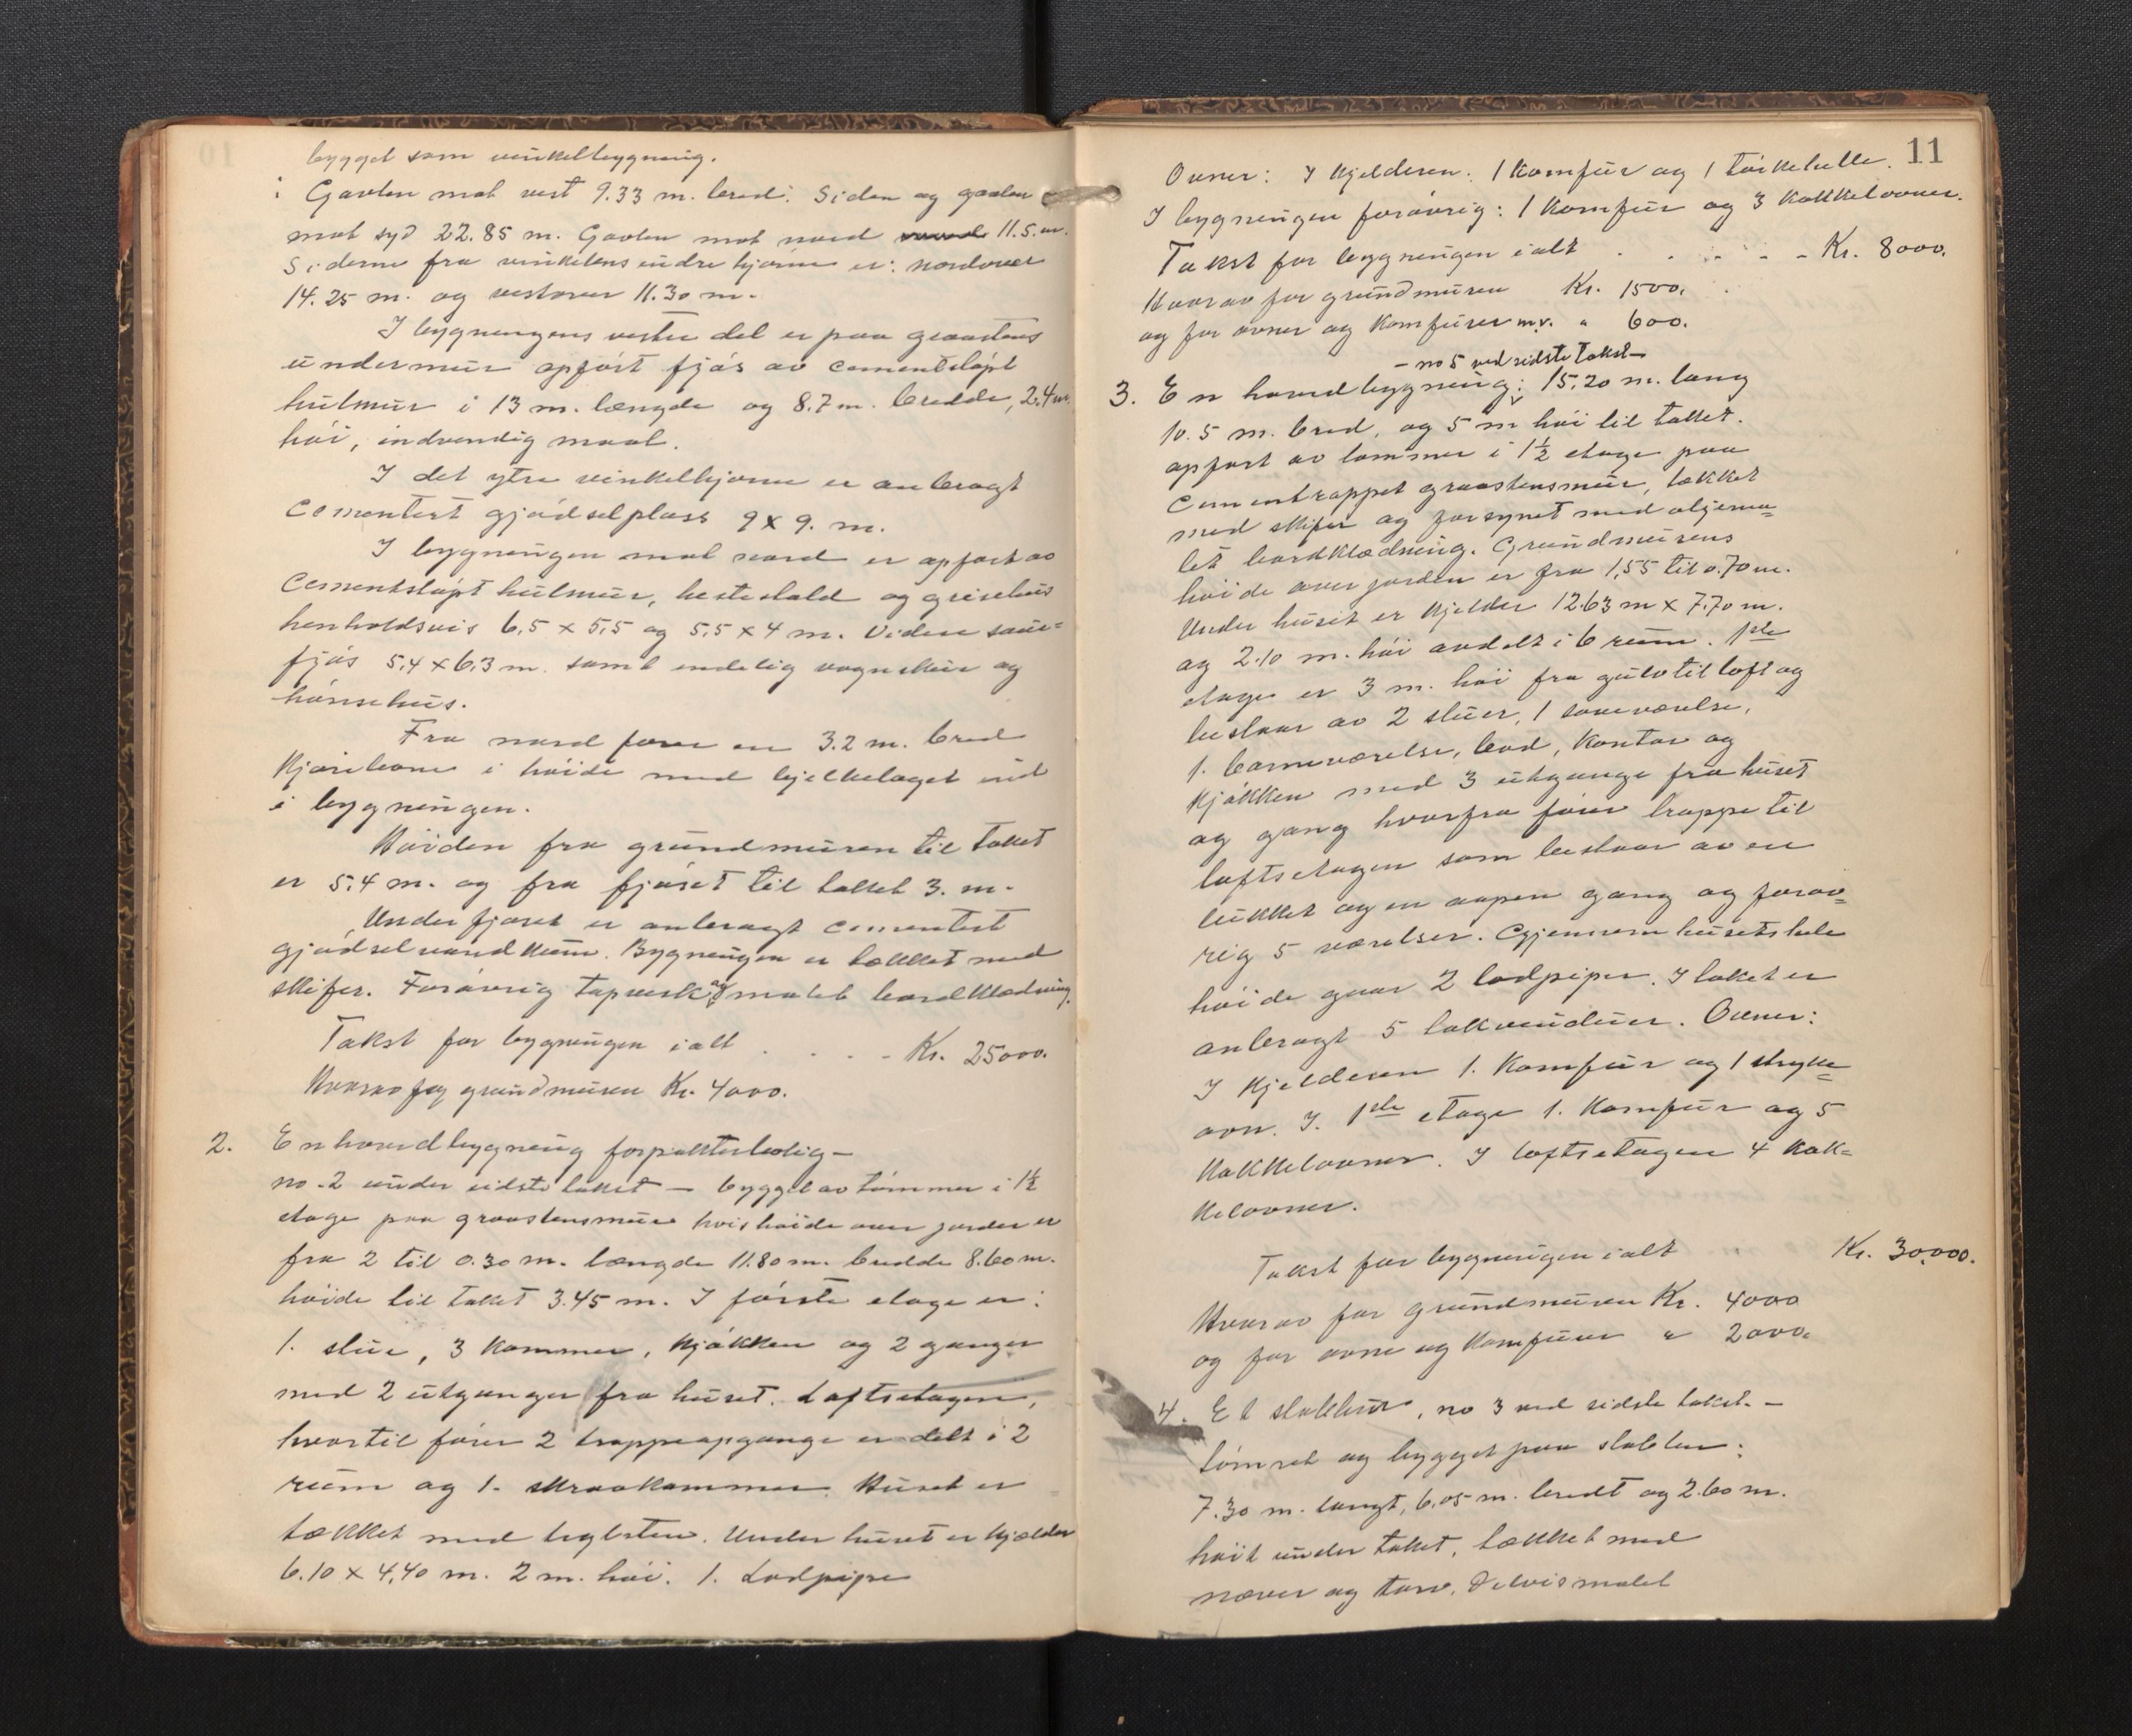 bygget som vinkelbygning.
Gavlen mot vest 9.33 m. bred. Siden og gavlen
mot syd 22.85 m. Gavlen mot nord 11.5. m.
Siderne fra vinkelens indre hjørne er: nordover
14.25 m. og vestover 11.30 m.
I bygningens vestre del er paa graastens
undermur opført fjøs av cementstøpt
hulmur i 13 m. længde og 8.7 m. bredde, 2.4 m.
høi, indvendig maal.
I det ytre vinkelhjørne er anbragt
cementert gjødselplass 9 x 9. m.
I bygningen mot nord er opført av
cementstøpt hulmur, hestestald og grisehus
henholdsvis 6,5 x 5,5 og 5,5 x 4 m. Videre saue=
fjøs 5.4 x 6.3 m. samt endelig vognskur og
hønsehus.
Fra nord fører en 3.2 m. bred
kjørebro i høide med bjelkelaget ind
i bygningen.
Høiden fra grundmuren til taket
er 5.4 m. og fra fjøset til taket 3. m.
Under fjøset er anbragt cementert
gjødselvandkum. Bygningen er tækket med
skifer. Forøvrig tapverk og malet bordklædning.
Takst for bygningen ialt . . . . Kr. 25000.
Hvorav for grundmuren Kr. 4000.
2. En hovedbygning forpakterbolig —
no. 2 under sidste takst — bygget av tømmer i 1½
etage paa graastensmur hvis høide over jorden er
fra 2 til 0.30 m. længde 11.80 m. bredde 8.60 m.
høide til taket 3.45 m. I første etage er:
1. stue, 3 kammer, kjøkken og 2 ganger
med 2 utganger fra huset. Loftsetagen,
hvortil fører 2 trappeopgange er delt i 2
rum og 1. skraakammer. Huset er
tækket med teglsten. Under huset er kjælder
6.10 x 4,40 m. 2 m. høi. 1. Lodpipe
11
Ovner: I kjelderen: 1 komfur og 1 tørkehelle.
I bygningen forøvrig: 1 komfur og 3 kakkelovner.
Takst for bygningen ialt . . . . . Kr. 8000.
Hvorav for grundmuren Kr. 1500.
og for ovner og komfurer m.v. " 600.
— no 5 ved sidste takst —
3. En hovedbygning: 15,20 m. lang
10.5 m. bred, og 5 m høi til taket.
opført av tømmer i 1½ etage paa
cementrappet graastensmur, tækket
med skifer og forsynet med oljema=
let bordklædning. Grundmurens
høide over jorden er fra 1,55 til 0.70 m.
Under huset er kjelder 12.63 m x 7.70 m.
og 2.10 m. høi avdelt i 6 rum. 1ste
etage er 3 m. høi fra gulv til loft og
bestaar av 2 stuer, 1 soveværelse,
1. barneværelse, bod, kontor og
kjøkken med 3 utgange fra huset
og gang hvorfra fører trappe til
loftsetagen som bestaar av en
lukket og en aapen gang og forøv=
rig 5 værelser. Gjennem husets hele
høide gaar 2 lodpiper. I taket er
anbragt 5 takvinduer. Ovner:
I kjelderen 1. komfur og 1 stryke=
ovn. I. 1ste etage 1. komfur og 5
kakkelovner. I loftsetagen 4 kak=
kelovner.
Takst for bygningen ialt Kr. 30,000.
Hvorav for grundmuren Kr. 4000
og for ovne og komfurer " 2000.
4. Et stabbur, no 3 ved sidste takst. —
tømret og bygget paa stabber:
7.30 m. langt, 6,05 m. bredt og 2.60 m.
høit under taket, tækket med
næver og torv. Delvis malet